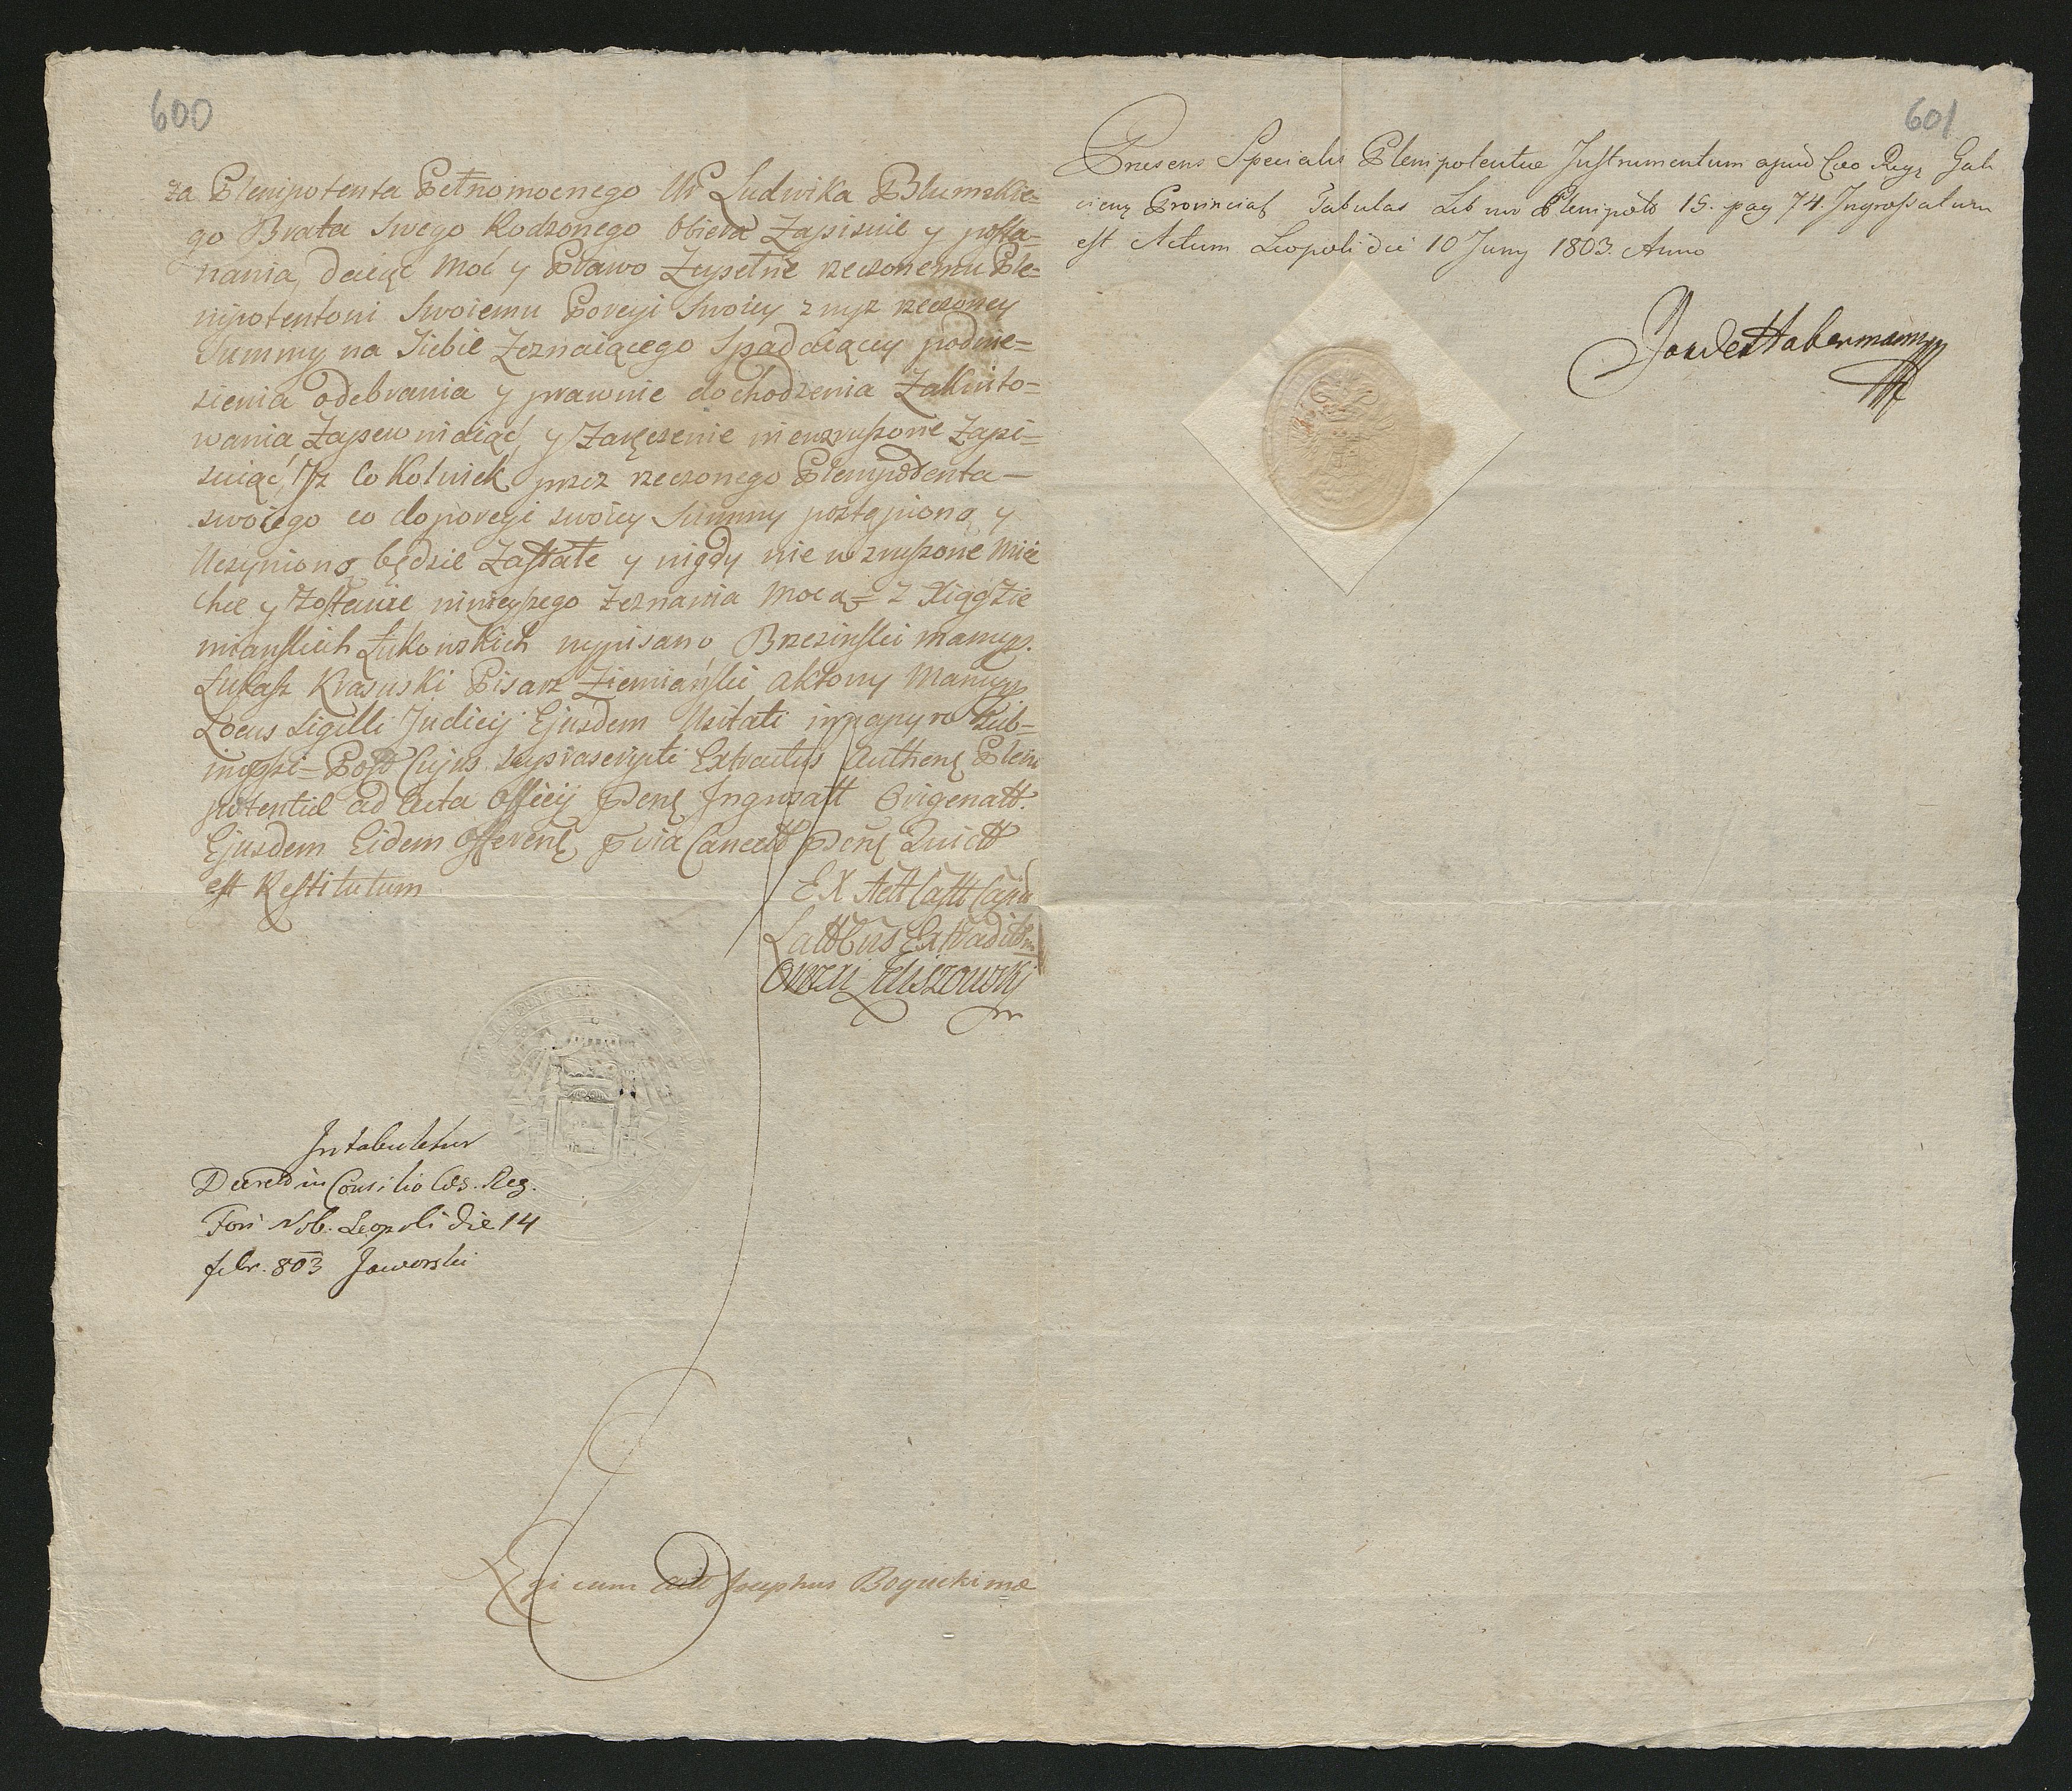 600
za Plenipotenta Pełnomocnego Ur Ludwika Blumskie=
go Brata swego Rodzonego Obiera Zapisuie y posta=
nania, daiąc Moc y Prawo Zupełne rzeczonemu Ple=
nipotentowi Swoiemu Porcyi Swoiey z wyż rzeczoney
Summy na Siebie Zeznaiącego Spadaiącey podnie=
sienia odebrania y prawnie dochodzenia Zakwito=
wania Zapewniaiąc, y Zaręczenie niewzruszone Zapi=
suiąc, Iż Cokolwiek przez rzeczonego Plenipotenta
swoiego co do porcyi swoiey Summy postąpiono y
Uczyniono będzie Zastałe y nigdy nie wzruszone Mieć
chce y Zostawie ninieyszego Zeznania Mocą = Z Xiąg Zie
mianskich Łukowskich wypisano Brzezinski manupp.
Łukasz Krasuski Pisarz Ziemiański aktowy Manupp
Locus Sigilli Judicij Ejusdem Usitati in papyro Sub=
impssi = Post Cujus suprascripti Extractus Authenț Pleni
potentiæ ad Acta Officij Præsenț Ingrosatt Originatt.
Ejusdem Eidem Offerenț præviâ Cancett Præsenț Quiett
est Restitutum
EX Actt Castt Capit
Lattbus Extradit
Onezi Leliszowskj
mp
Intabuletur
Decret in Consilio Cæs. Reg.
Fori Nob. Leopoli die 14
febr. 803 Jaworski
Legi cum actis Josephus Bogucki mp
601
Præsens Specialis Plenipotentiæ Instrumentum apud Cæo Regz Gali
cienz Provincial Tabulas Libro Plenipot 15. pag 74. Ingrossatum
est Actum Leopoli die 10 Juny 1803. Anno
Habermann mp